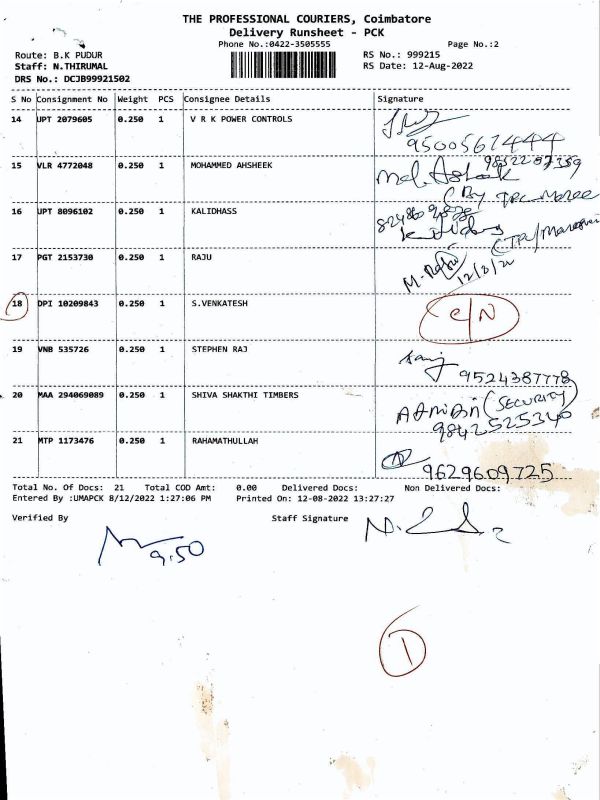 THE PROFESSIONAL COURIERS, Coimbatore
Delivery Runsheet - PCK
Phone No.:0422-3505555 Page No.:2
Route: B.K PUDUR RS No.: 999215
Staff: N.THIRUMAL RS Date: 12-Aug-2022
DRS No.: DCJB99921502
S No Consignment No Weight PCS Consignee Details Signature
14 UPT 2079605 0.250 1 V R K POWER CONTROLS
9500561444
15 VLR 4772048 0.250 1 MOHAMMED AHSHEEK
16 UPT 8096102 0.250 1 KALIDHASS
17 PGT 2153730 0.250 1 RAJU
18 DPI 10209843 0.250 1 S.VENKATESH C/N
19 VNB 535726 0.250 1 STEPHEN RAJ
9524387778
20 MAA 294069089 0.250 1 SHIVA SHAKTHI TIMBERS (SECURITY)
9842525340
21 MTP 1173476 0.250 1 RAHAMATHULLAH
9629609725
Total No. Of Docs: 21 Total COD Amt: 0.00 Delivered Docs: Non Delivered Docs:
Entered By :UMAPCK 8/12/2022 1:27:06 PM Printed On: 12-08-2022 13:27:27
Verified By Staff Signature
9.50
1